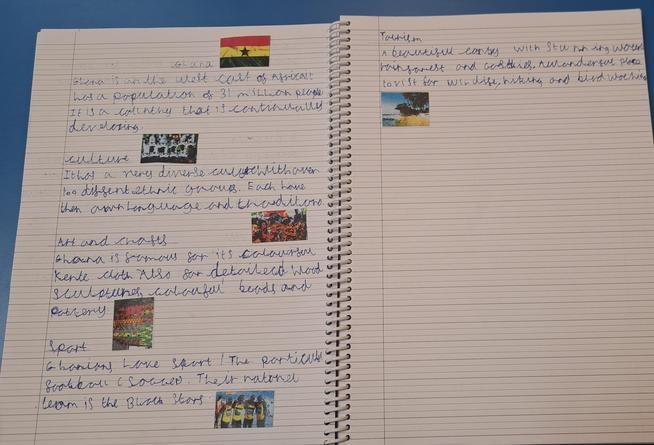 Ghana
Ghana is an the west cast of Africa it
has a population of 31 million people
It is a country that is continually
developing.
culture
It has a very diverse culture with over
100 different ethnic groups. Each have
their own language and traditions
Art and crafts
Ghana is famous for its colourful
Kente cloth Also for detailed wood
sculptures, colourful beads and
pottery
Sport
Ghanians Love sport! The particular
football (soccer). Their national
team is the Black Stars
Tourism
A beautiful with
rainforest and A wonderful place
to visit for wildlife, hiking and bird watching